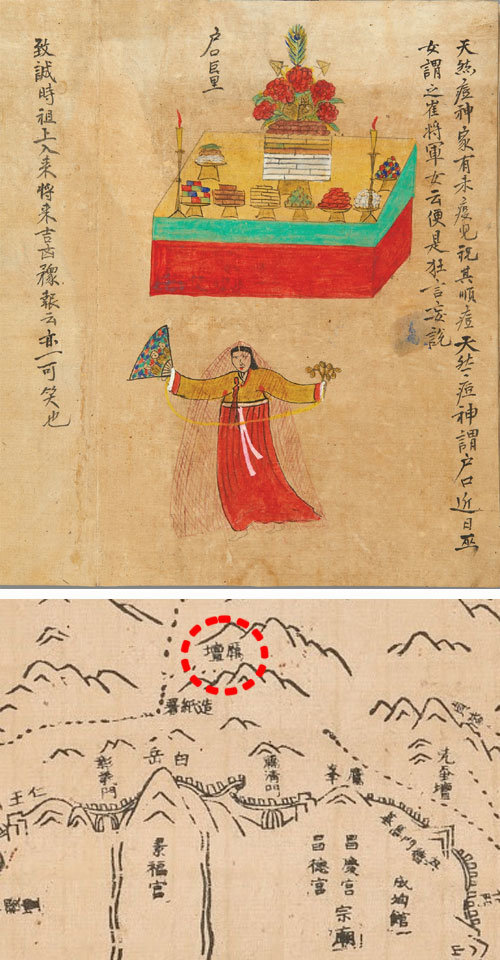 天然痘神家有未疫兒祝其順痘天然痘神謂户口近日巫
女謂之崔將軍女云便是狂言妄說
户口巨里
致誠時祖上入来将来吉凶豫報云亦一可笑也
厲壇
造紙署
鷹峯
肅清門
白岳
彰義門
仁王
成均館
宗廟
昌慶宮
昌德宮
景福宮